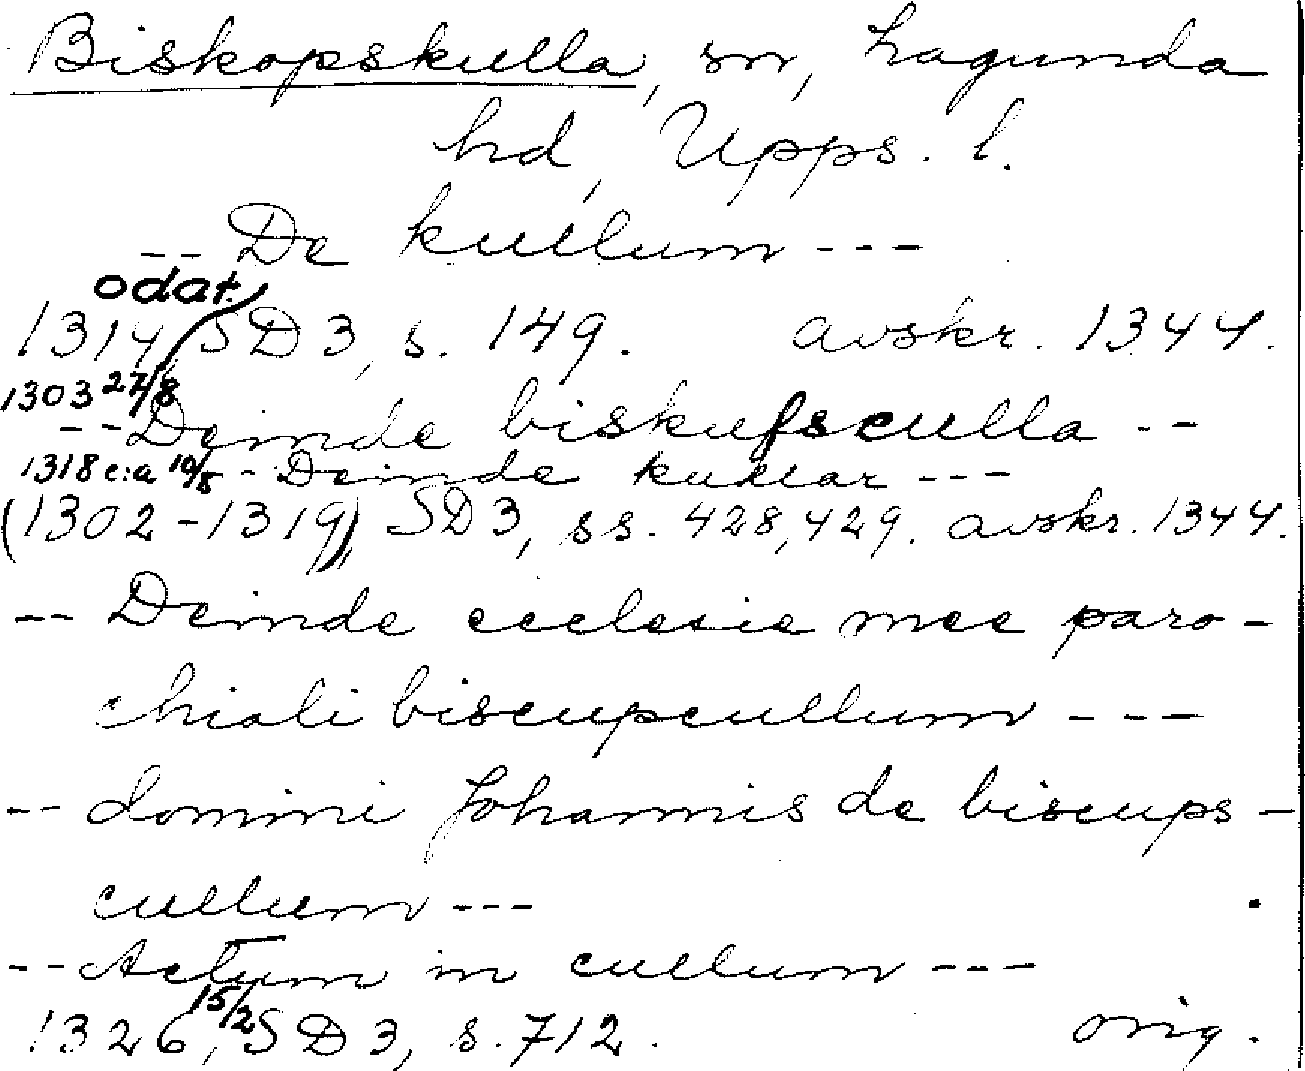 Biskopskulla, sn, Hagunda
hd, Upps. l.
-- De kullum ---
odat.
1314, SD 3, s. 149. avskr. 1344.
1303 27/8
-- Deinde biskufsculla --
1318 c:a 10/8 - Deinde kullar ---
(1302-1319), SD 3, ss. 428, 429. avskr. 1344.
-- Deinde ecclesie mee paro-
chiali biscupcullum ---
-- domini Johannis de biscups-
cullum ---
-- Actum in cullum ---
1326 15/2, SD 3, s. 712. orig.